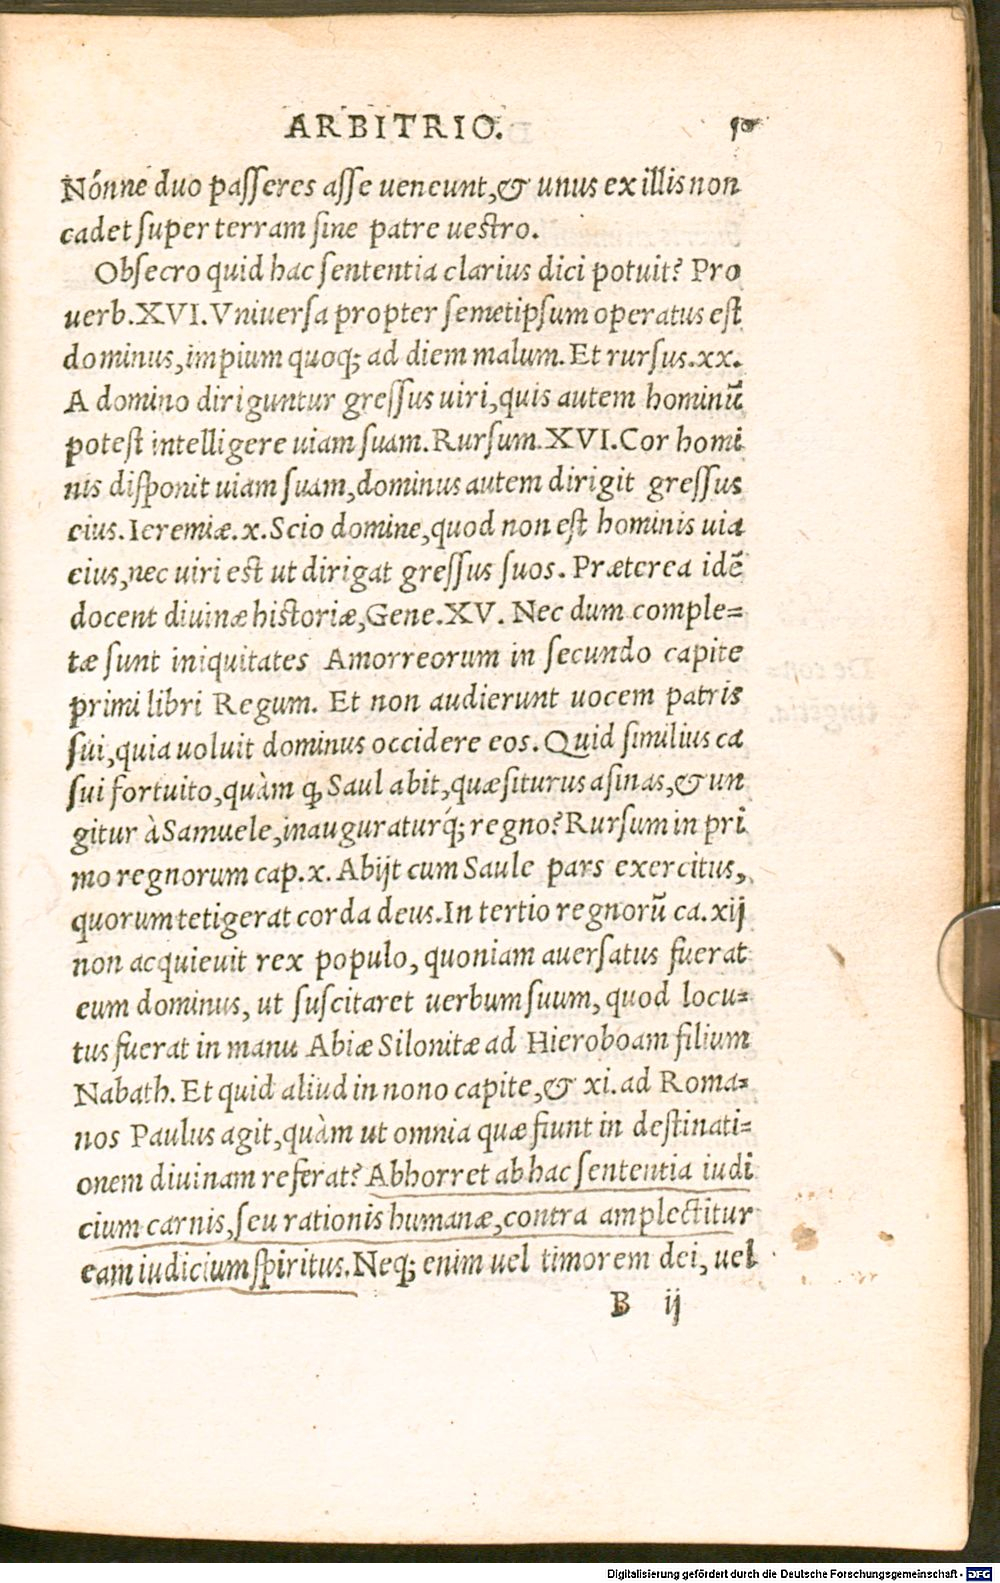 ARBITRIO.
Nónne duo paſſeres aſſe ueneunt,& unus ex illis non
cadet ſuper terram ſine patre ueſtro.
Obſecro quid hac ſententia clarius dici potuit? Pro
uerb.XVI.Vniuerſa propter ſemetipſum operatus eſt
dominus,impium quoq; ad diem malum.Et rurſus.xx.
A domino diriguntur greſſus uiri,quis autem hominū
poteſt intelligere uiam ſuam.Rurſum.XVI.Cor homi
nis diſponit uiam ſuam,dominus autem dirigit greſſus
eius.Ieremiæ.x.Scio domine,quod non eſt hominis uia
eius,nec uiri eſt ut dirigat greſſus ſuos. Præterea idē
docent diuinæ hiſtoriæ,Gene.XV. Nec dum comple=
tæ ſunt iniquitates Amorreorum in ſecundo capite
primi libri Regum. Et non audierunt uocem patris
ſui,quia uoluit dominus occidere eos. Quid ſimilius ca
ſui fortuito,quàm ꝙ Saul abit,quæſiturus aſinas,& un
gitur à Samuele,inauguraturq́; regno? Rurſum in pri
mo regnorum cap.x. Abijt cum Saule pars exercitus,
quorum tetigerat corda deus.In tertio regnorū ca.xij
non acquieuit rex populo, quoniam auerſatus fuerat
eum dominus, ut ſuſcitaret uerbum ſuum, quod locu=
tus fuerat in manu Abiæ Silonitæ ad Hieroboam filium
Nabath. Et quid aliud in nono capite,& xi. ad Roma=
nos Paulus agit,quàm ut omnia quæ fiunt in deſtinati=
onem diuinam referat? Abhorret ab hac ſententia iudi
cium carnis, ſeu rationis humanæ,contra amplectitur
eam iudicium ſpiritus.Neq; enim uel timorem dei, uel
B ij
Digitalisierung gefördert durch die Deutsche Forschungsgemeinschaft - DFG